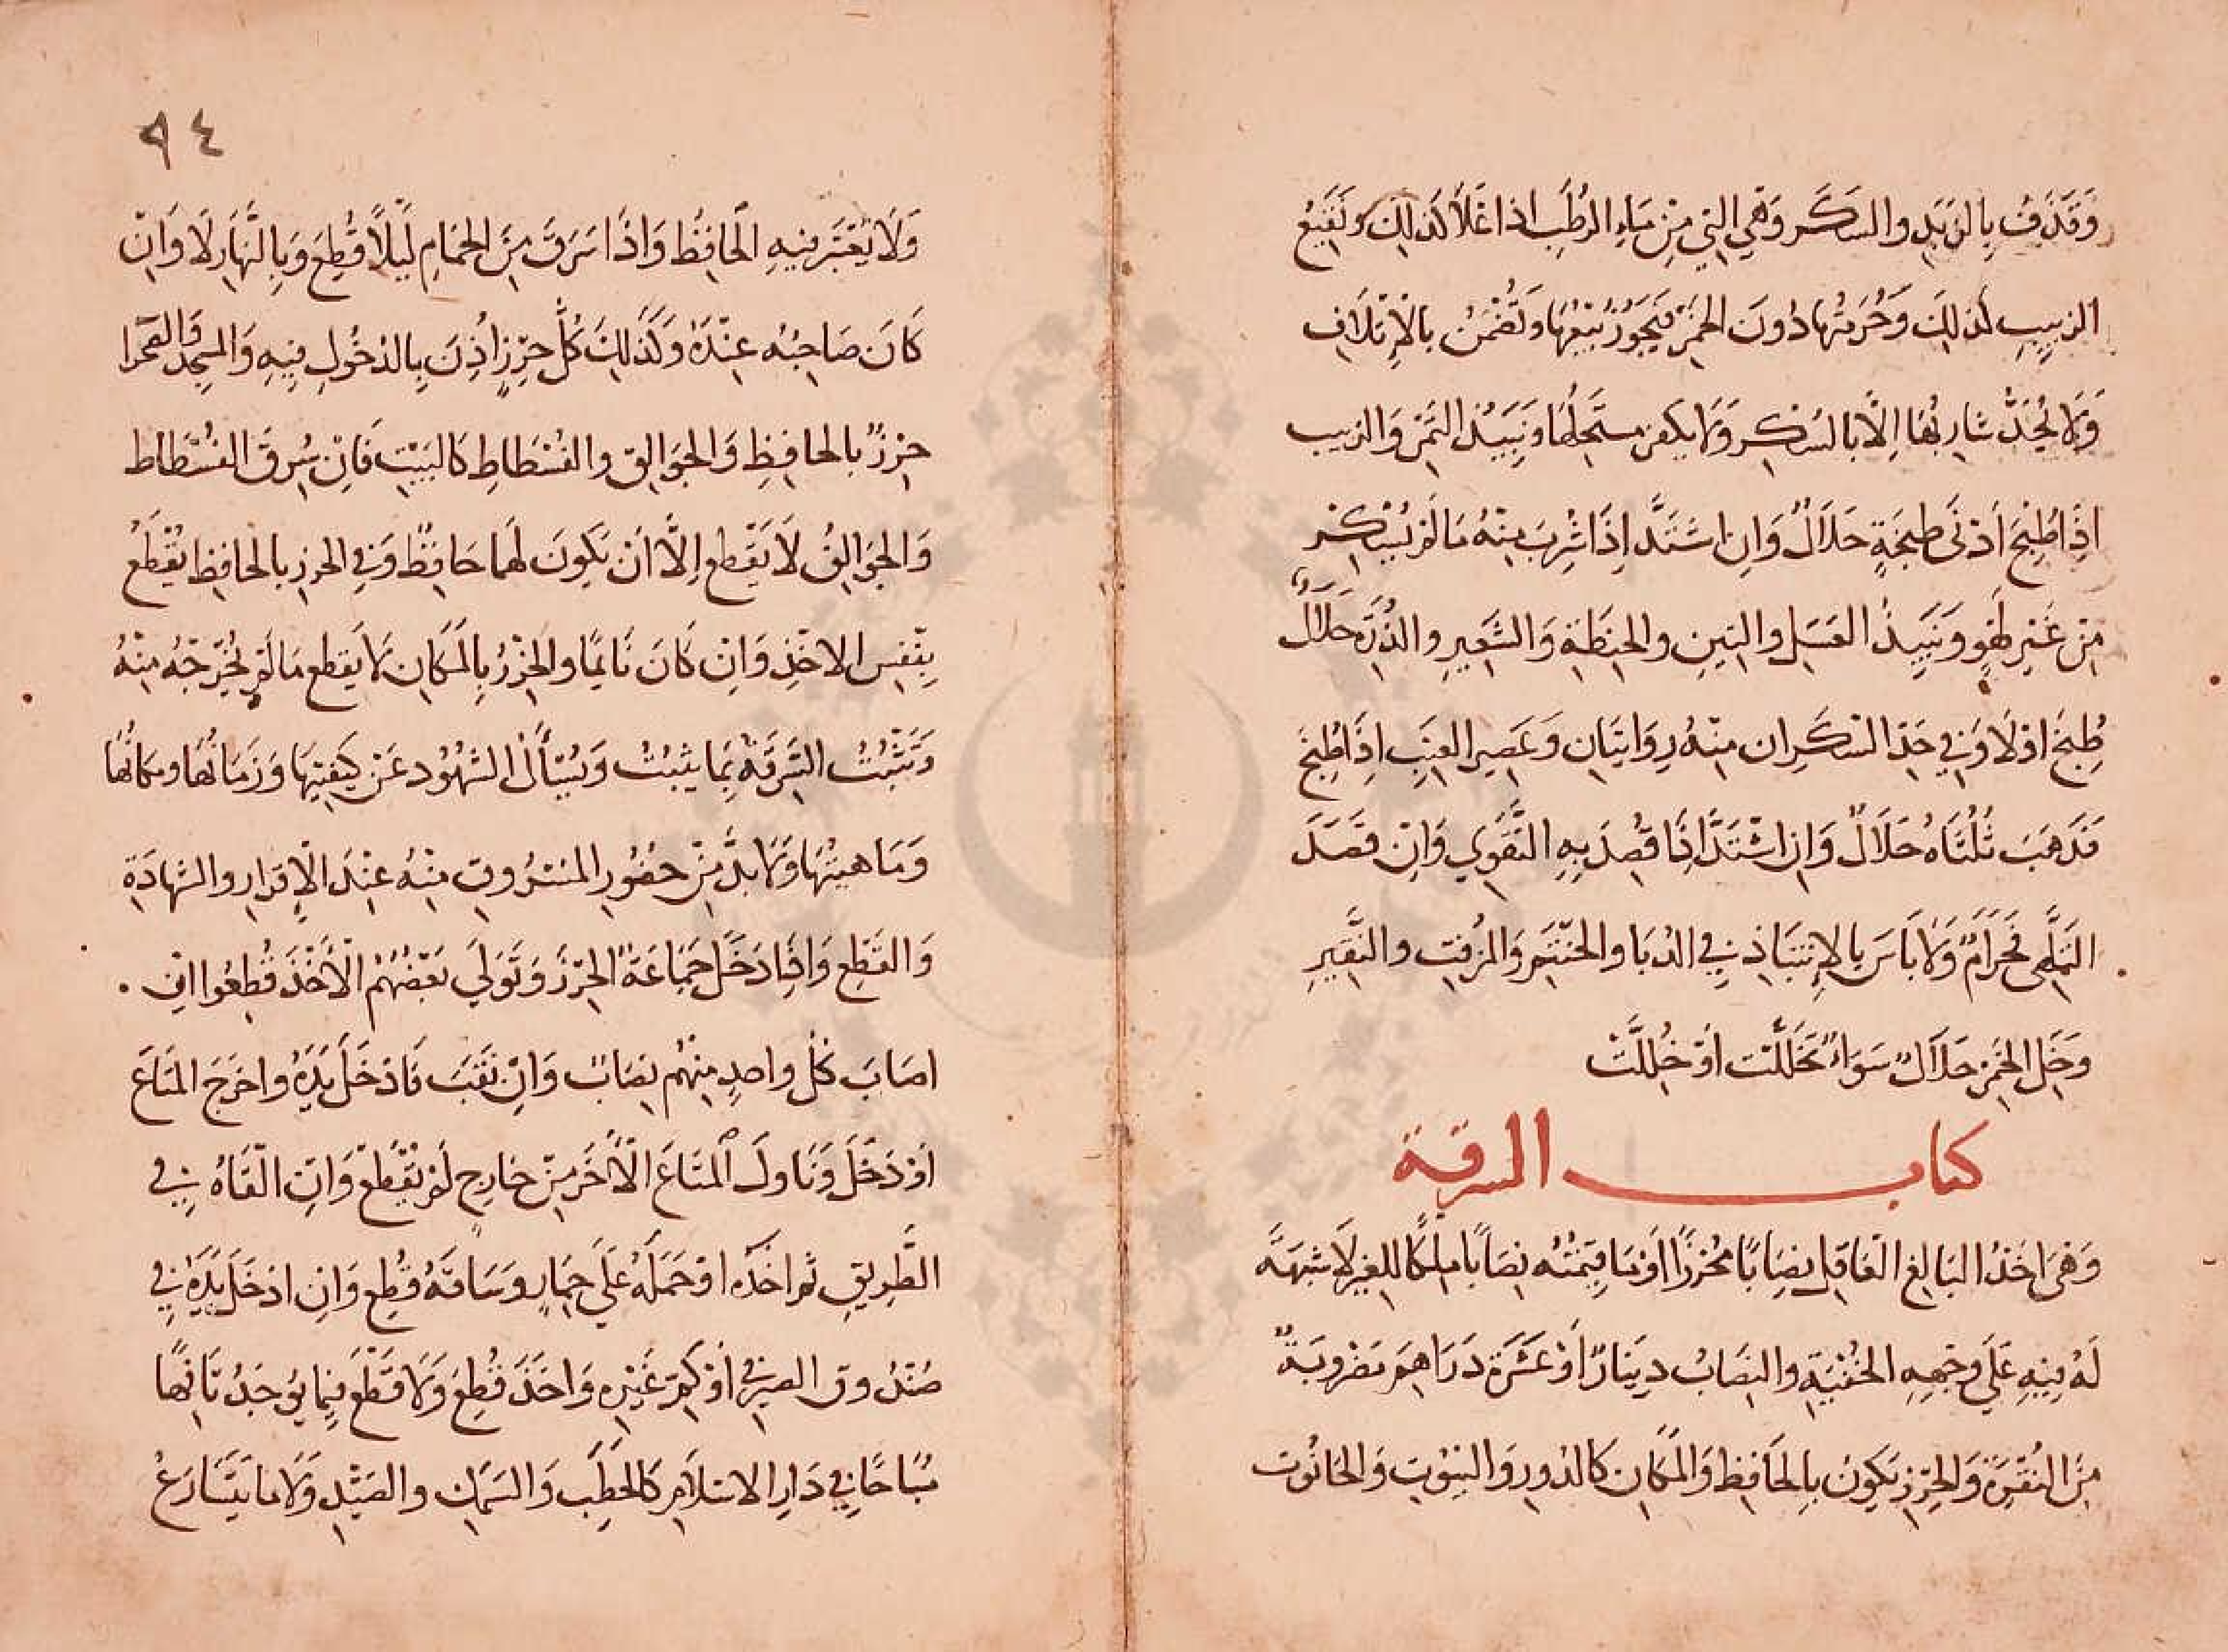 وَقَذَفَ بِالزَبَدِ والسَكَر وَهي التي مِنْ مَاءِ الرُطَبِ اذا غَلاَ كَذلِكَ ونَقيعُ
الزبيبِ كَذلِكَ وَحُرْمَتُها دُونَ الخَمْرِ فَيَجُوزُ بَيْعُهَا وتُضْمَنُ بالإِتْلاَفِ
وَلا يُحَدُّ شارِبُهَا اِلَّا بالسُكْرِ وَلا يكفر مستَحِلُّهَا ونَبِيذُ التَمْرِ والزبيب
اِذَا طُبِخَ أَدْنَى طبخَةٍ حَلاَلٌ وَاِن اشتَدَّ اِذَا شُرِبَ مِنْهُ مَا لَمْ يُسْكِرْ
مِنْ غَيْرِ لَهْوٍ ونَبِيذُ العَسَلِ والتينِ والحِنطَةِ وَالشَعِيرِ والذُرَةِ حَلَالٌ
طُبِخَ اوْ لَا وَفي حَدِّ السَكْرانِ مِنْهُ رِوَايَتَانِ وَعَصِير العِنَبِ اِذَا طُبِخَ
فَذَهَبَ ثُلُثَاهُ حَلاَلٌ وَاِن اشْتَدَّ اِذَا قُصِدَ بِهِ التَّقَوِّي وَاِنْ قَصَدَ
التَلَهِّي فَحَرَامٌ وَلَا بَأسَ بالاِنْتِبَاذِ في الدُبَا والحَنْتَمِ وَالمزُفتِ والنَّقِيرِ
وخَلِ الخَمْرِ حَلاَلٌ سَوَاءٌ تَخَلَّلَت اَوْ خُلِلَّتْ
كتاب السرقة
وَهْيَ اَخذُ البَالِغِ العَاقِلِ نِصَابًا مُحْرَزًا اَوْ مَا قِيمَتُه نِصَابًا مِلكًا للغيرِ لَا شبهَةَ
لَهُ فِيهِ عَلَى وَجهِهِ الخُفْيَةِ والنِصَابُ دِينَارٌ اَوْ عَشَرَةُ دَرَاهِمَ مَضْرُوبَةٌ
مِنَ النُقْرَةِ وَالحِرْزِ يَكُونُ بِالحَافِظِ وَالمَكَانِ كَالدُورِ وَالبيُوتِ وَالحَانُوتِ
٩٤
وَلَا يُعْتَبَر فيهِ الحَافِظُ وَاذَا سَرَقَ مِنَ الحَمَامِ لَيْلًا قُطِعَ وَبِالنَّهَارِ لَا وَاِنْ
كَانَ صَاحِبُه عِنْدَهُ وَكَذلِكَ كُلُّ حِرْزٍ أُذِنَ بِالدخُولِ فِيهِ وَالمسجِدُ وَالصحرا
حِرْزٌ بالحافِظِ وَالجَوَالِقِ والفُسْطَاطِ كَالبَيْتِ فَاِنْ سُرِقَ الفُسْطَاطُ
وَالجَوَالِقُ لَا يُقْطع اِلَّا اَنْ يَكُونَ لَهما حَافِظٌ وَفي الحرزِ بالحَافِظِ يُقْطَعُ
بِنَفْسِ الاخْذِ وَاِنْ كَانَ نَائِمًا والحِرْزُ بِالمَكَانِ لَا يقطع مَا لَمْ يُخْرِجْهُ مِنْهُ
وَتَثْبُتُ السَّرِقَةُ بِمَا يثبتُ وَيُسْأَلُ الشهُوُد عَنْ كَيفِيتِهَا وَزَمَانُهَا ومكانُهَا
وَمَاهيتُهَا وَلَا بدَّ مِنْ حضُورِ المسْرُوقِ مِنْهُ عِنْدَ الْإِقرَارِ والشهَادَةِ
وَالقَطْعِ وَاِذَا دَخَلَ جَمَاعَةٌ الحِرْزَ وَتَوَلَي بَعْضُهُمُ الأَخْذَ قُطِعُوا اِنْ
اصَابَ كُل واحِدٍ مِنْهُم نِصَابٌ وَاِنْ نَقَبَ فَادْخَلَ يَدَهُ واخرَجَ المَتَاعَ
اَوْ دَخَلَ وَنَاوَلَ المتَاعَ الآخَر مِنْ خارِجٍ لَمْ يُقْطَعْ وَاِنِ القَاهُ في
الطَّرِيقِ ثم اَخَذَه اوْ حَمَلَهُ عَلَى حِمَارٍ وسَاقَهُ قُطِع وَاِن ادْخَلَ يَدَهُ في
صُنْدُوق الصيرفي اَوْ كمِّ غَيْرِه وَاخَذَ قُطِعَ وَلَا قَطْعَ فِيمَا يوُجَدُ تَافِهًا
مُبَاحًا في دَارِ الاسْلاَمِ كَالحَطَبِ وَالسَمَكِ والصَيْدِ وَلَا مَا يَتَسَارَعُ